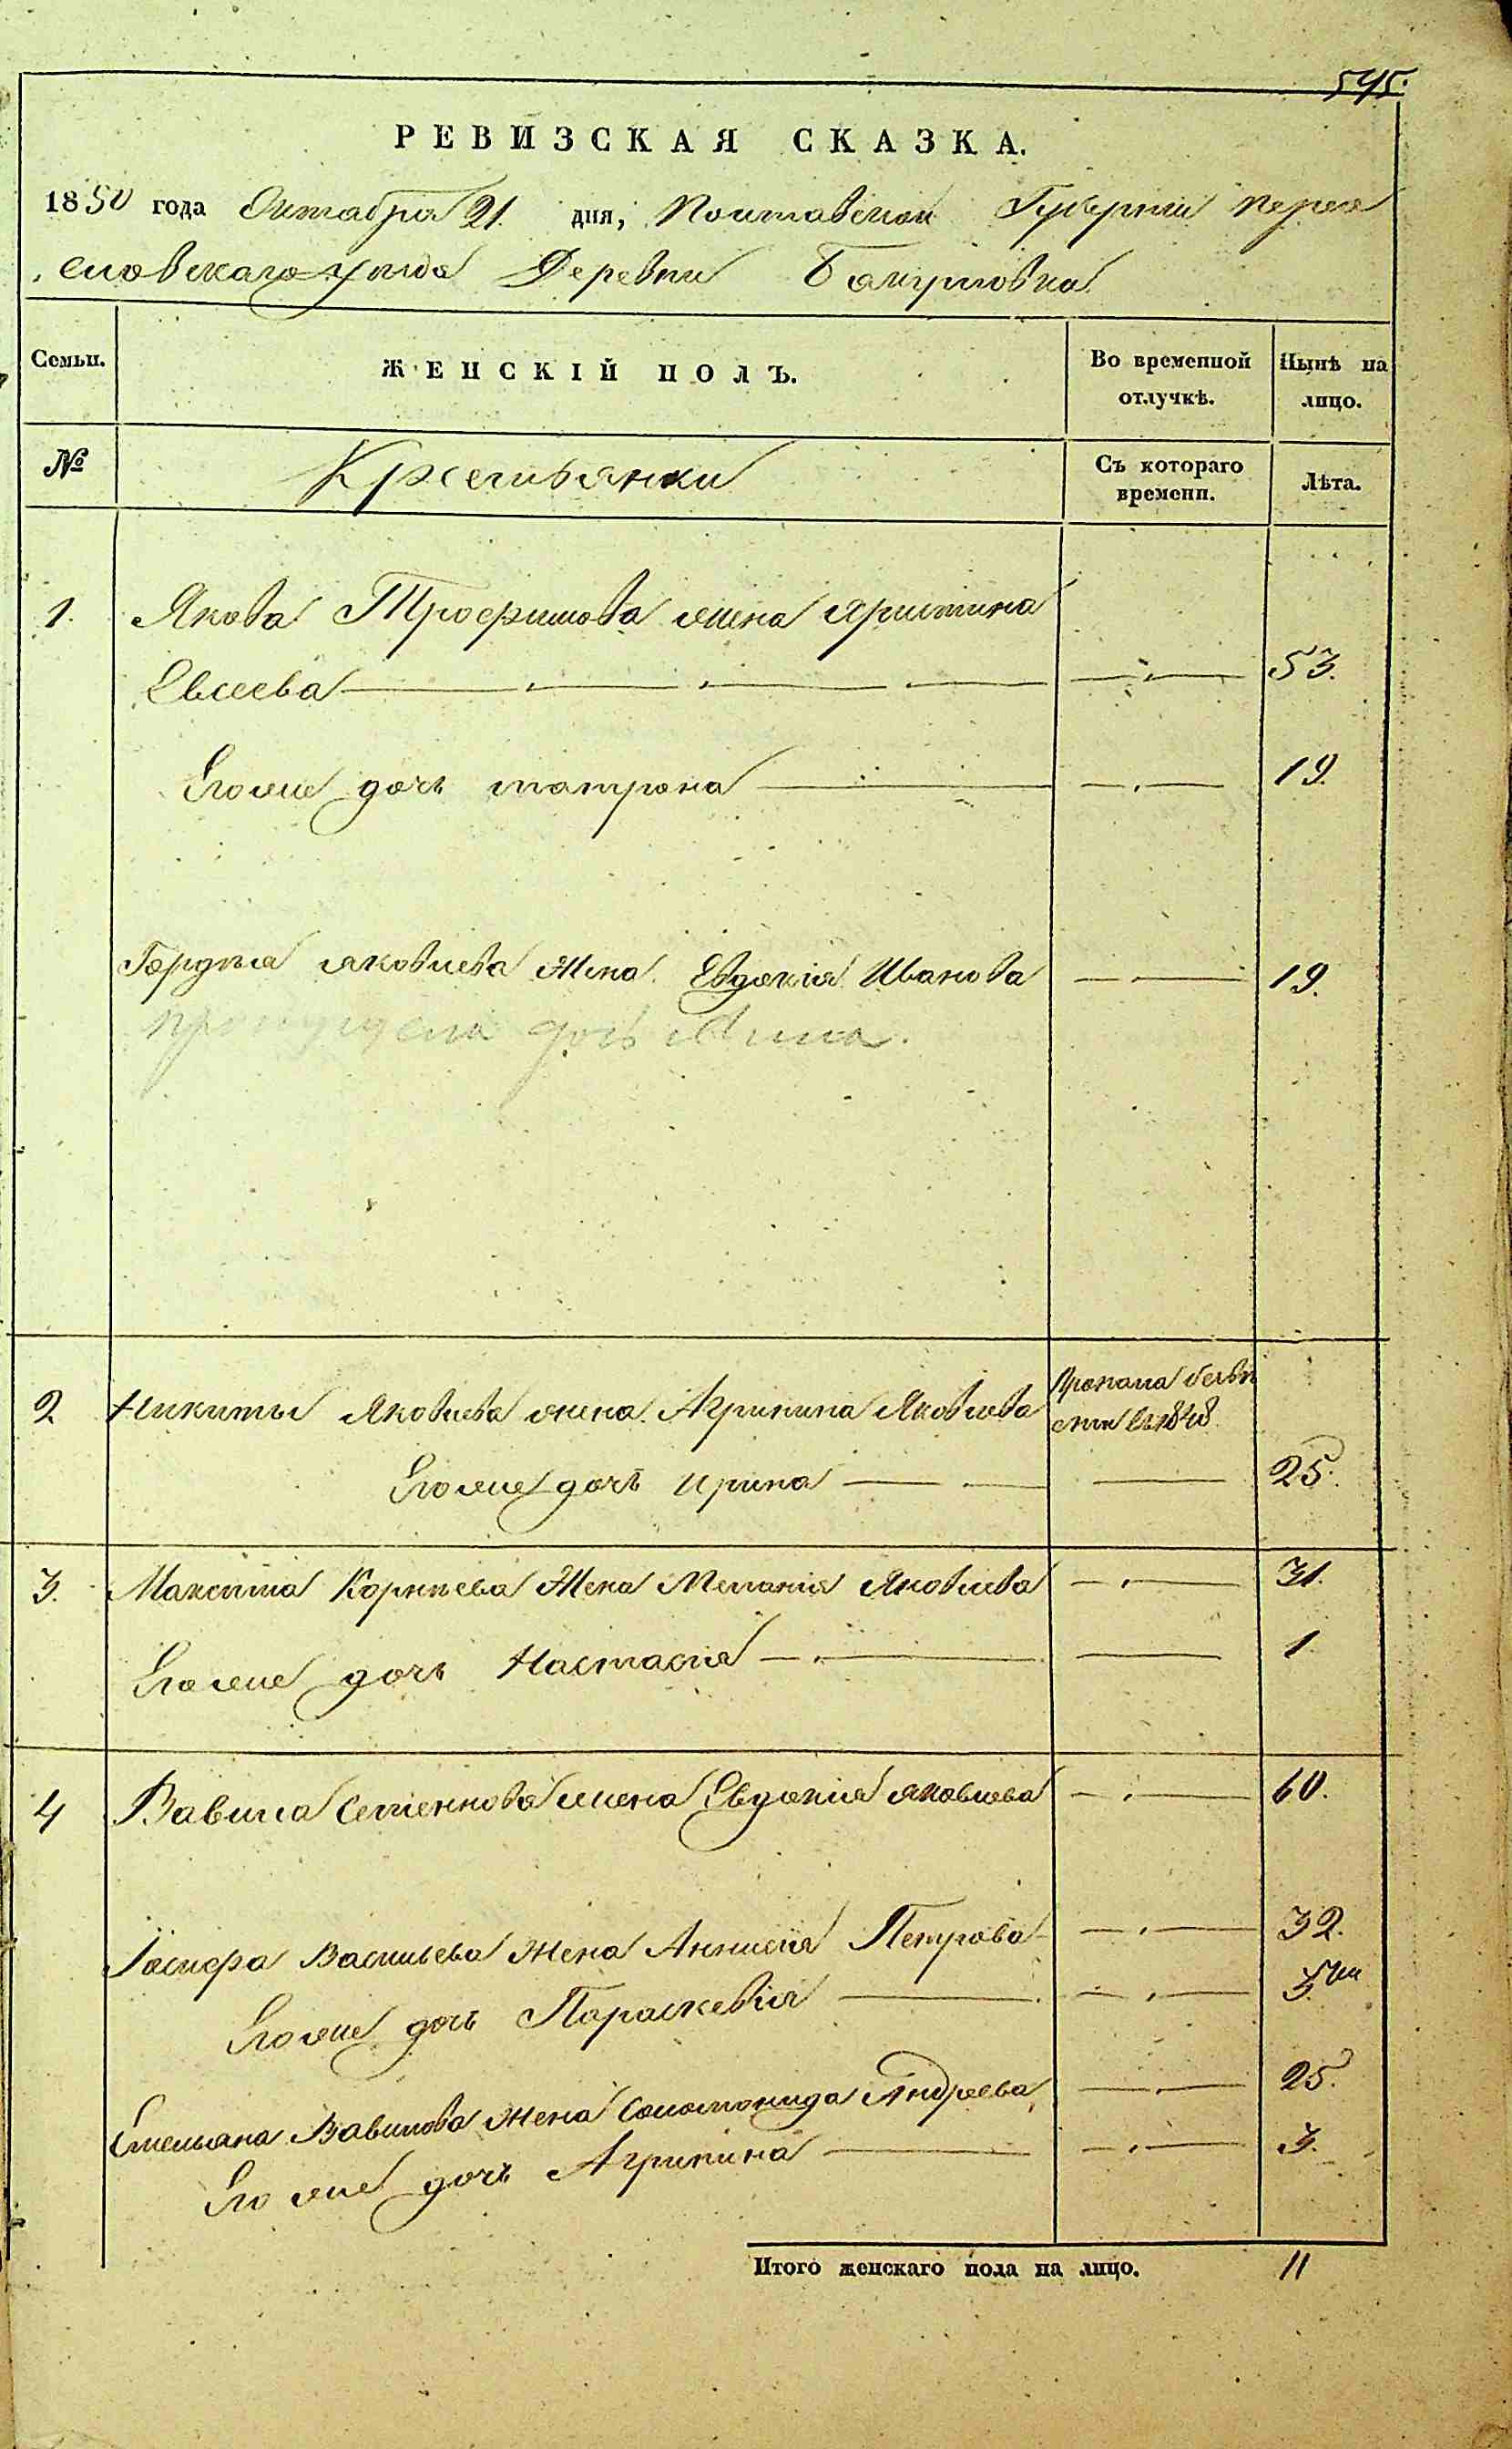 545.
РЕВИЗСКАЯ СКАЗКА.
1850 года Октабра 21. дня, Полтавской Губернии Перея
словскаго уезда Деревни
Семьи.
ЖЕНСКІЙ ПОЛЪ.
Во временной отлучкѣ.
Нынѣ на лицо.
№
Крестьянки
Съ котораго времени.
Лѣта.
1. Якова Трофимова жена Христина
Евсеева 53.
Егоже дочь матрона 19.
Гордѣя яковлева жена Евдокія Иванова 19.
пропущена дочь Анна.
2 Никиты Яковлева жена Агрипина Яковлева Пропала безвѣ
сти въ 1848
Егоже дочь ирина 25.
3. Макенма Корнѣева Жена Меланія Яковлева 31.
Егоже дочь Настасія 1
4 Вавила Семеннова жена Евдокія яковлева 60.
Іосифа Васильева жена Аннисія Петрова 32.
Егоже дочь Параскевія 5
Емельяна Вавилова жена Соломонида Андреева 25.
Егоже дочь Агрипина 3.
Итого женскаго пола на лицо. 11